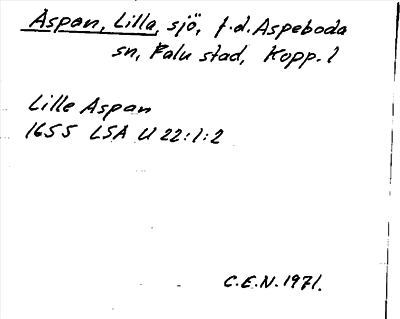 Aspan, Lilla, sjö, f.d. Aspeboda
sn, Falu stad, Kopp. l
Lille Aspan
1655 LSA U 22:1:2
C.E.N. 1971.